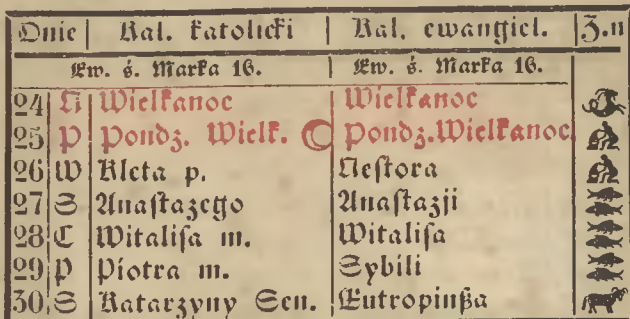 Dnie Kal. katolicki Kal. ewangiel. Z.n
Ew. ś. Marka 16. Ew. ś. Marka 16.
24 N Wielkanoc Wielkanoc
25 P Pondz. Wielk. Pondz.Wielkanoc
26 W Kleta p. Nestora
27 S Anastazego Anastazji
28 C Witalisa m. Witalisa
29 P Piotra m. Sybili
30 S Katarzyny Sen. Eutropiußa